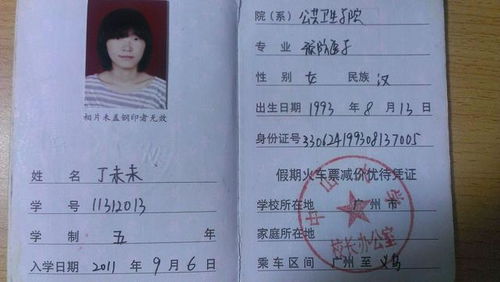 相片未盖钢印者无效
姓 名 丁未未
学 号 11312013
学 制 五 年
入学日期 2011 年 9 月 6 日
院（系） 公共卫生学院
专 业 预防医学
性 别 女 民族 汉
出生日期 1993 年 8 月 13 日
身份证号 330624199308137005
假期火车票减价优待凭证
学校所在地 广州市
家庭所在地
乘车区间 广州 至 义乌
中山大学
校长办公室